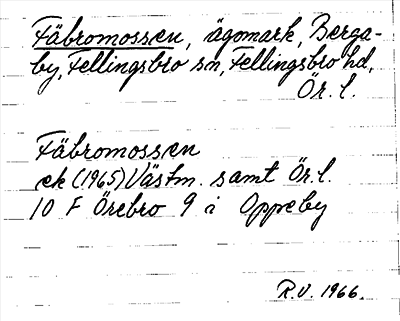 Fäbromossen, ägomark, Berga-
by, Fellingsbro sn, Fellingsbro hd,
Ör. l.
Fäbromossen
ek (1965) Västm. samt Ör. l.
10 F Örebro 9 i Oppeby
R.V. 1966.